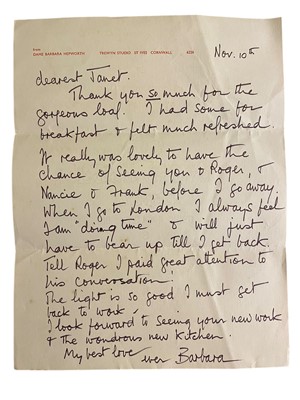 From
DAME BARBARA HEPWORTH TREWYN STUDIO ST IVES CORNWALL
Nov. 10th
dearest Janet.
Thank you so much for the
gorgeous loaf. I had some for
breakfast & felt much refreshed.
It really was lovely to have the
chance of seeing you & Roger, &
Nancie & Frank, before I go away.
When I go to London I always feel
I am "doing time" & will just
have to bear up till I get back.
Tell Roger I paid great attention to
his conversation!
The light is so good I must get
back to work.
I look forward to seeing your new work
& the wondrous new kitchen.
My best love ever Barbara